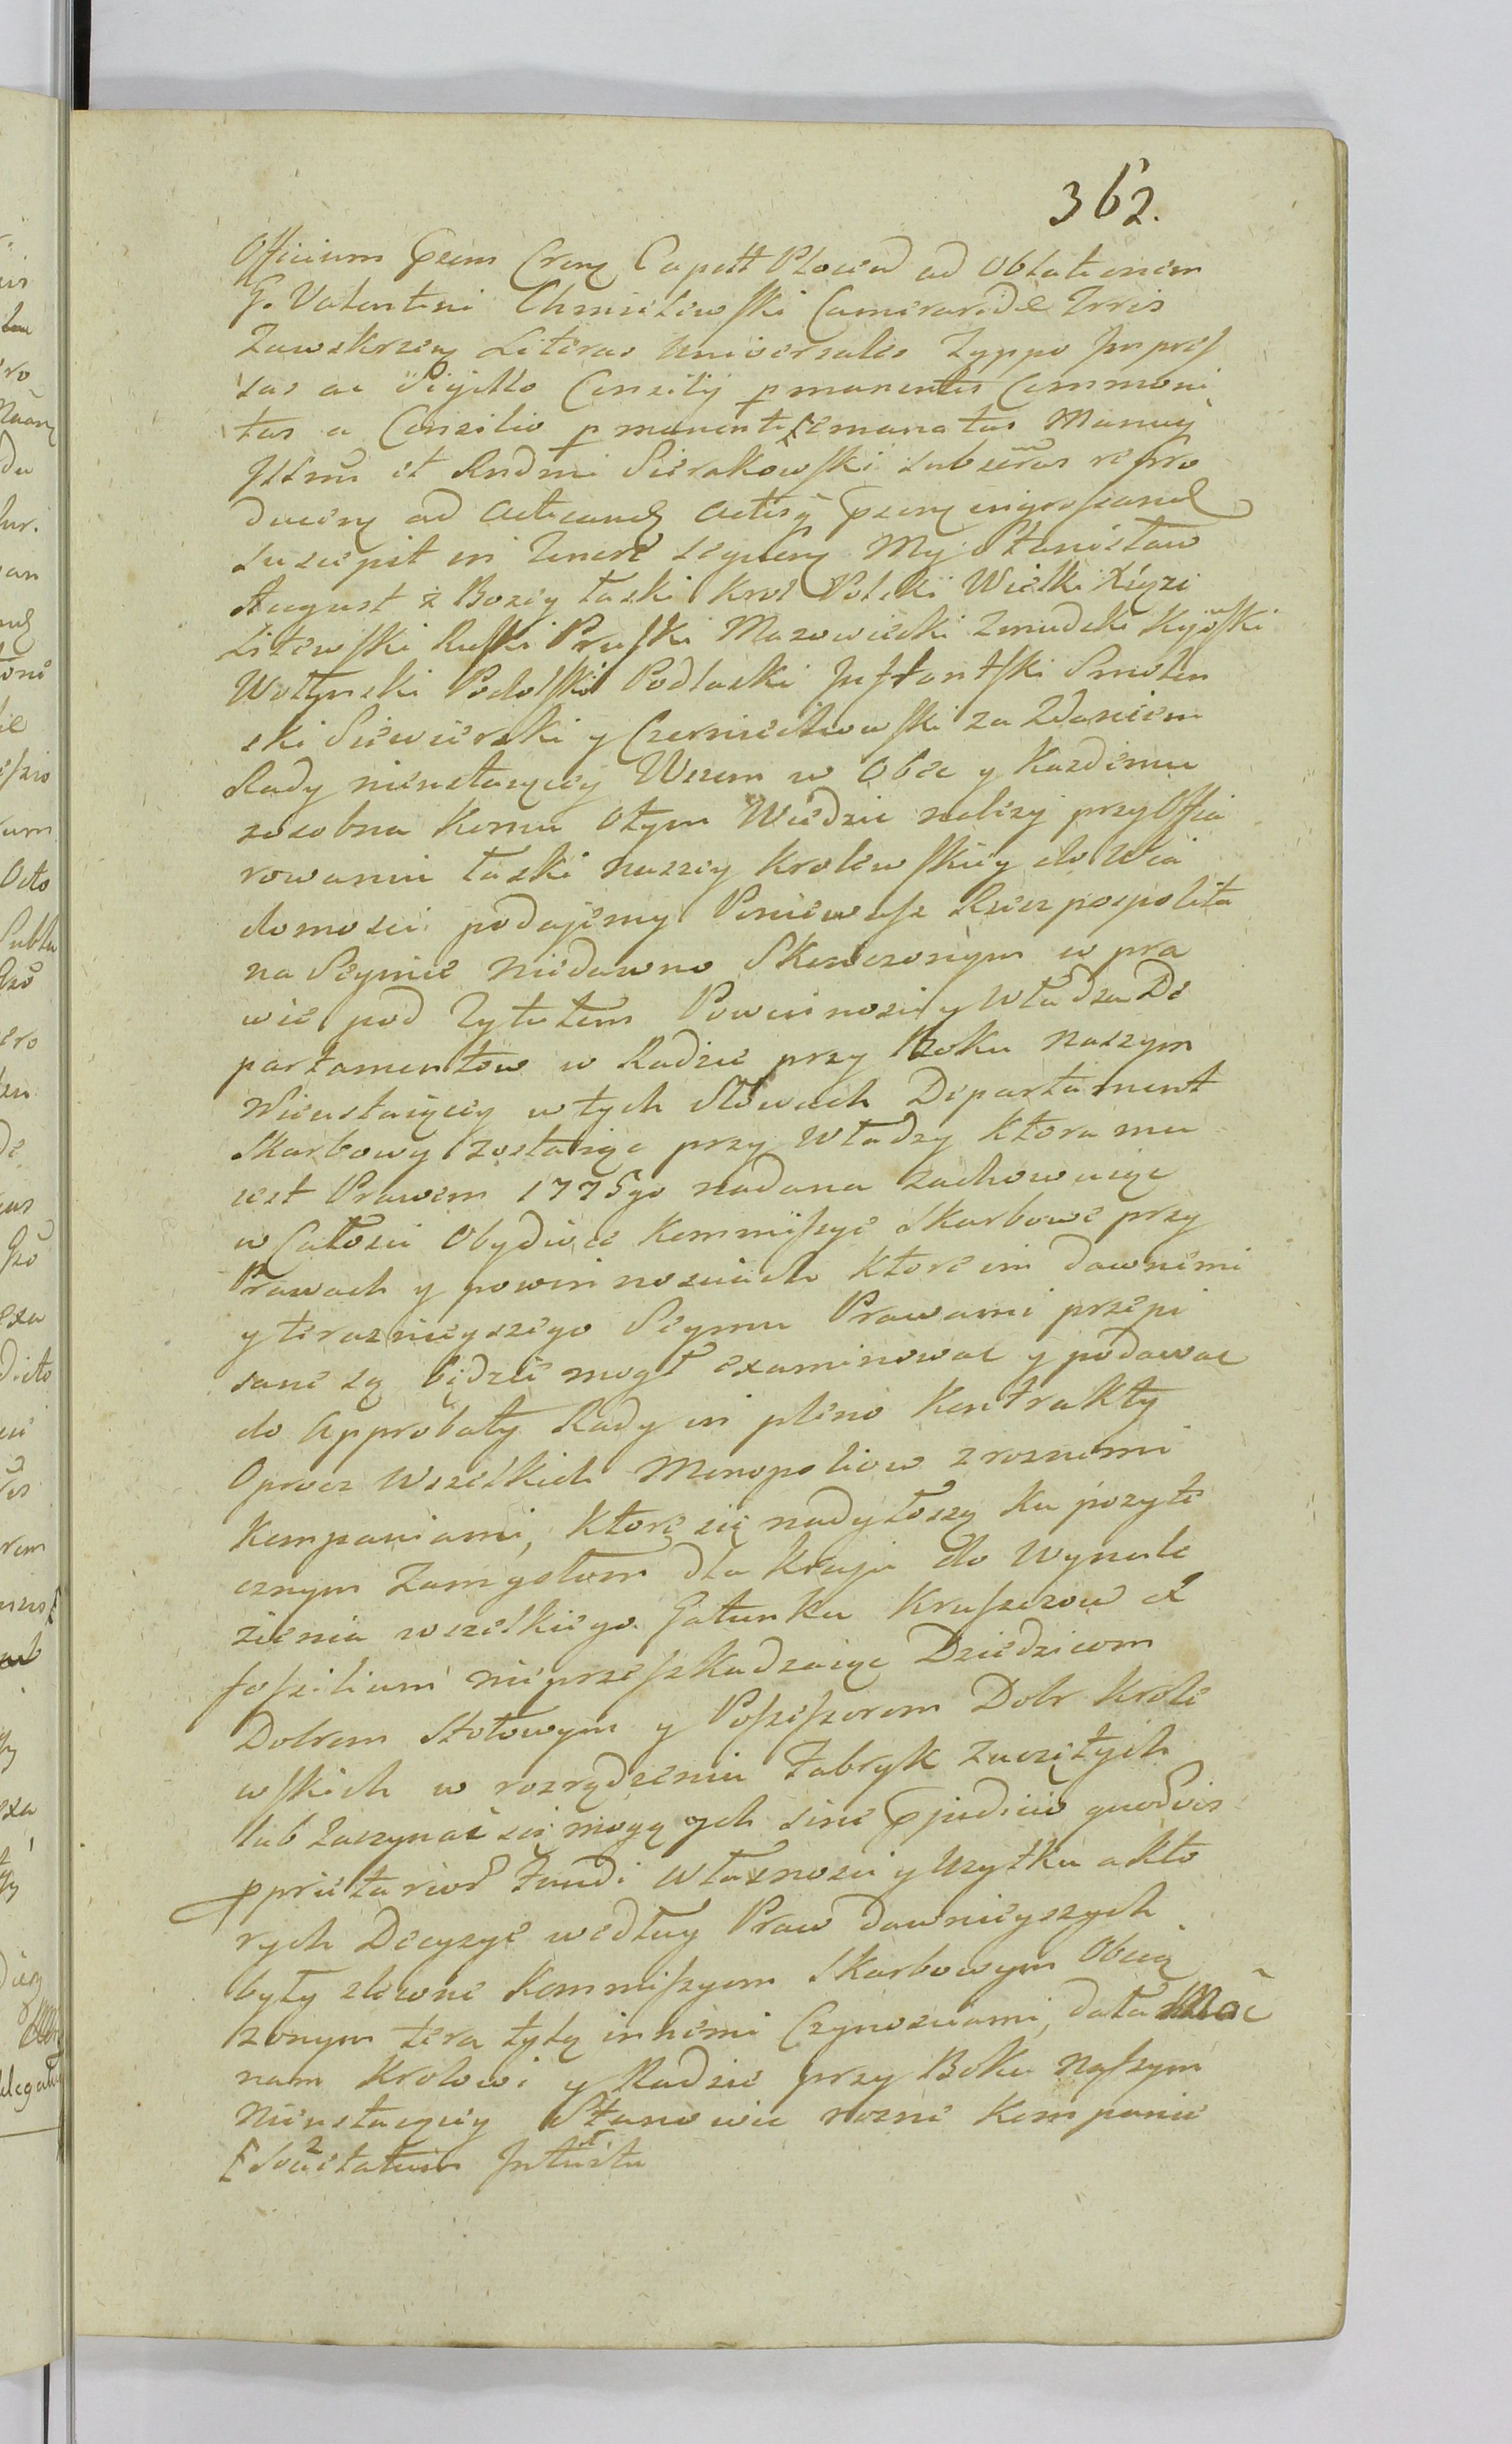 362.
Officium Gzens Crenz Capett Plocen ad Oblationem
G. Valentini Chmielewski Camerarii de Trris
Zawskrzen Literas Universales Typpo Impres
sas ac Sigillo Consilij pmanentis Commoni
tas a Consilio pmanenti emanatas Manuq
Illmi et Rndmi Sierakowski subscras repro
ducen ad acticand actisq pzen ingrossand
suscepit in Tenore sequen My Stanisław
August z Bozey łaski Krol Polski Wielki Xiąze
Litewski Ruski Pruski Mazowiecki Zmudzki Kijowski
Wołynski Podolski Podlaski Inflantski Smolen
ski Siewierski y Czerniechowski za Zdaniem
Rady nieustaiącey Wszem w Obec y Kazdemu
zosobna Komu otym Wiedzie nalezy przy Offia
rowaniu łaski naszey Krolewskiey do Wia
domosci podajemy Poniewasz Rzeczpospolita
na Seymie niedawno Skonczonym w pra
wie pod Tytułem Powinnosci y Władza De
partamentow w Radzie przy Boku naszym
Nieustaiącey w tych Słowach Departament
Skarbowy zostaiąc przy Władzy ktora mu
iest Prawem 1775go nadana zachowuiąc
w Całosci Obydwie Kommissye Skarbowe przy
Prawach y powinnosciach ktore im dawnemi
y teraznieyszego Seymu Prawami przepi
sane są będzie mogł examinować y podawac
do Approbaty Rady in pleno Kontrakty
Oprocz Wszelkich Monopoliow z roznemi
Kompaniami, ktore się nadytoszą ku pozyte
cznym Zamysłom dla Kraju do Wynale
zienia wszelkiego Gatunku Kruszcow et
fossilium nieprzeszkadzaiąc Dziedzicom
Dobrom Stołowym y Possessorom Dobr Krole
wskich w rozrządzeniu Fabryk Zaczętych
lub Zaczynać się mogących sine pjudicio quodvis
pprietarior Fundi Własnosci y Uzytku a kto
rych Decyzye według Praw dawnieyszych
były zlewne Kommissyom Skarbowym Obcią
zonym tera tylą innemi Czynosciami, dała Moc
nam Krolowi y Radzie przy Boku Naszym
Nieustaiącey Stanowic rozne Kompanie